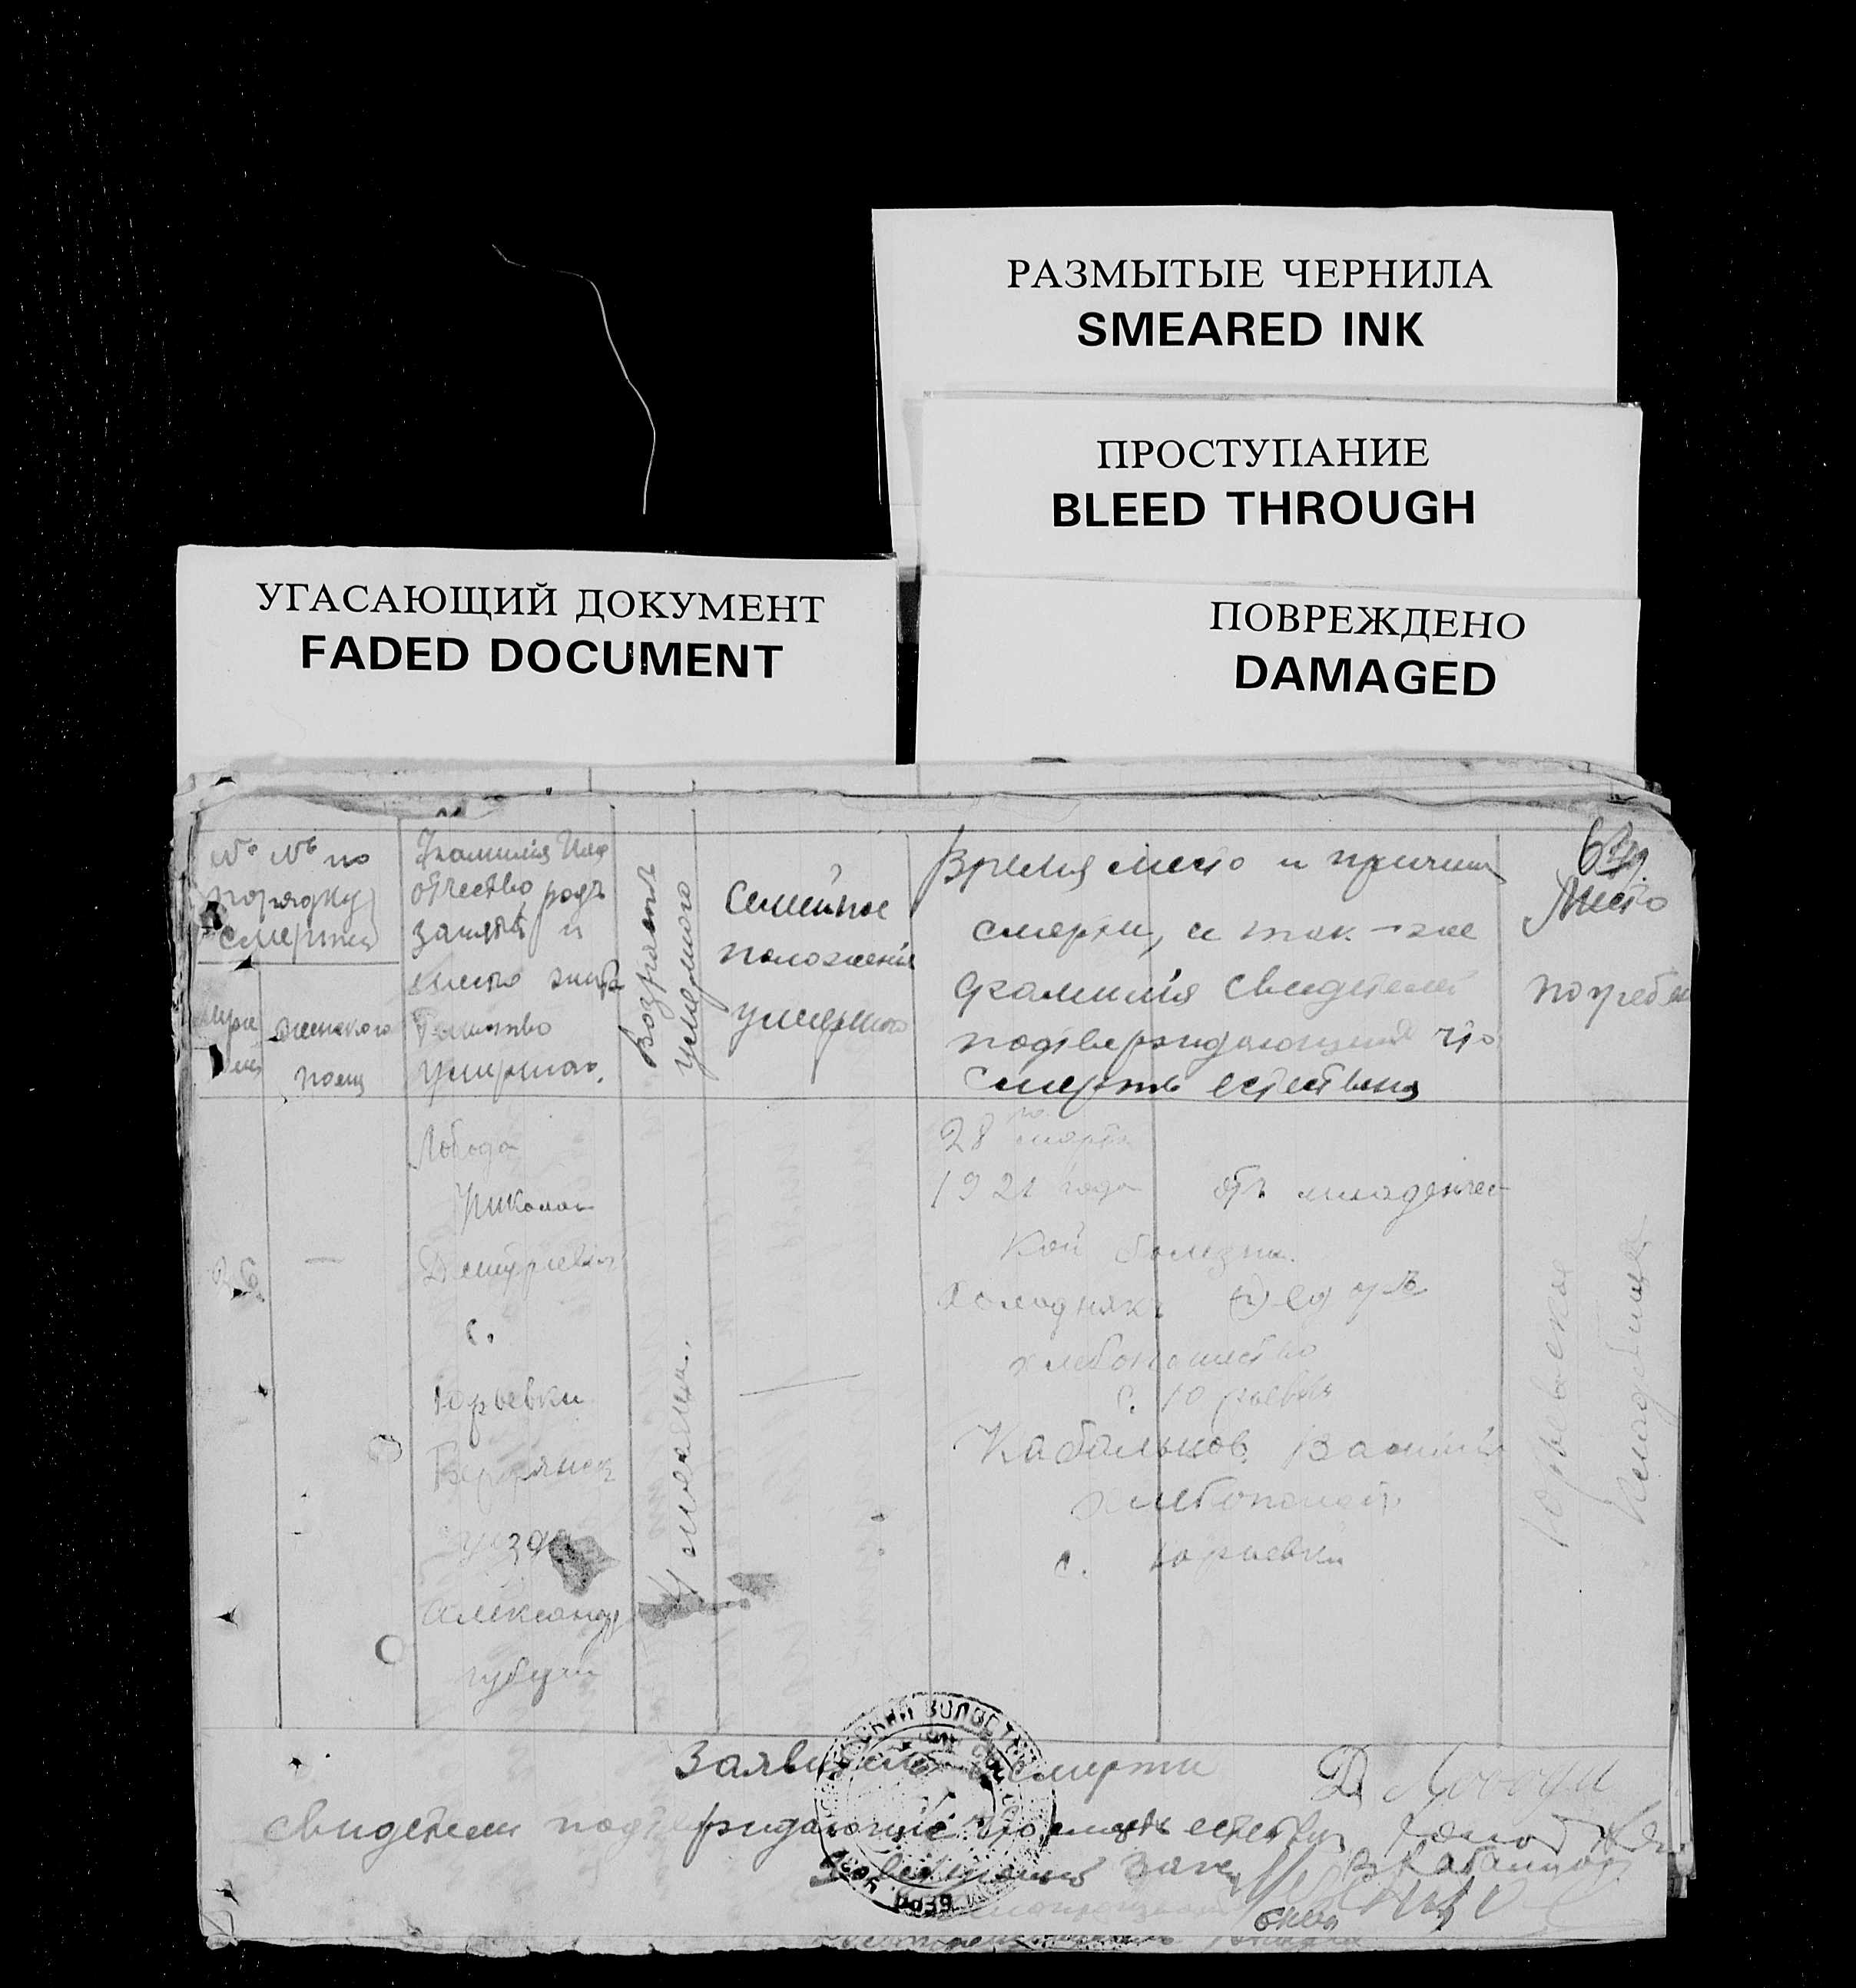 РАЗМЫТЫЕ ЧЕРНИЛА
SMEARED INK
ПРОСТУПАНИЕ
BLEED THROUGH
УГАСАЮЩИЙ ДОКУМЕНТ
FADED DOCUMENT
ПОВРЕЖДЕНО
DAMAGED
№ № по
порядку
смерти
женского
пола
Фамилия Имя
отчество родъ
занятій и
место жит
умершаго.
Возрастъ
умершого
Семейное
положеніе
умершого
Время место и причина
смерти, а так-же
фамилія свидетелей
подтверждающия что
смерть естествена
Место
погребен
Лобода
Николай
Дмитриевич
с.
Юрьевки
Бердянск
уезда
Александр
губерни
28 марта
1921 года отъ младенчес
кой болезни.
Холодняк
хлебопашество
с. Юрьевки
Кабальнов Василий
хлебопашец
с. Юрьевки
Юрьевское
Кладбище
Заявитель о смерти Д Лобода
свидетели подтверждающие что смерть естествен